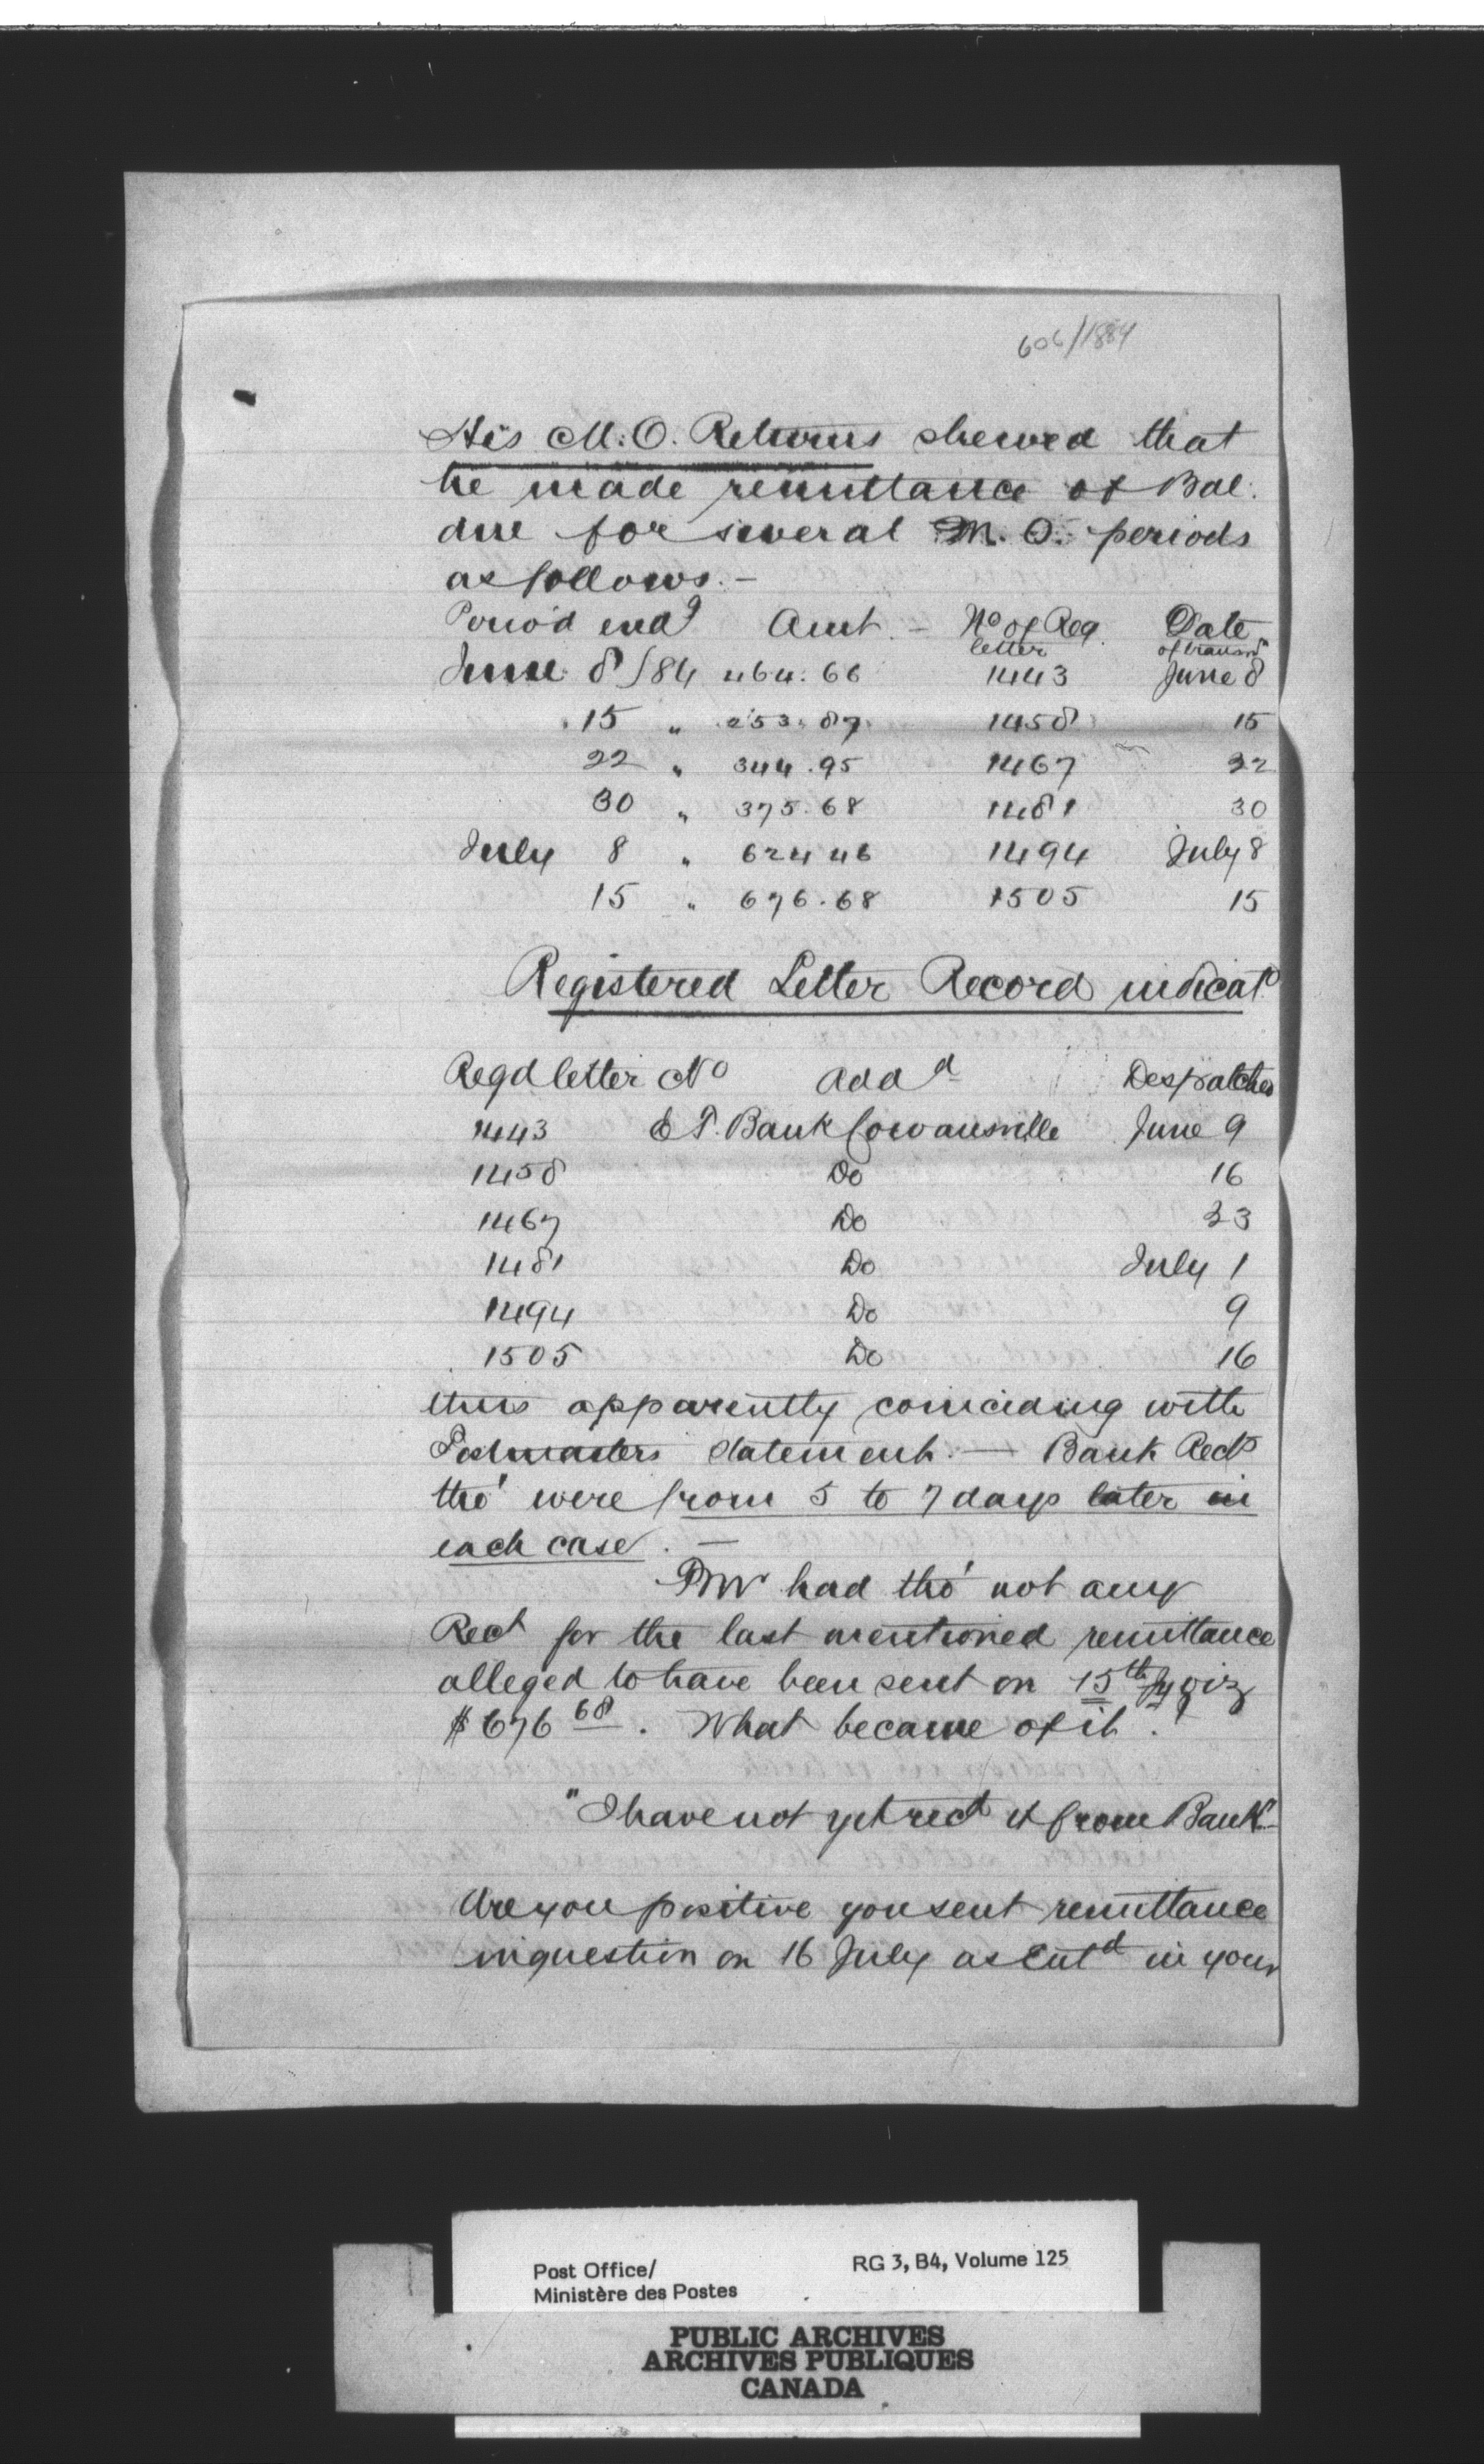 606/1884
His M.O. Returns shewed that
he made remittance of Bal.
due for several M.O. periods
as follows. —
Period endg Amt. — No of Reg. letter Date of transmn
June 8/84 464.66 1443 June 8
15 " 253.87 1458 15
22 " 344.95 1467 22
30 " 375.68 1481 30
July 8 " 624 46 1494 July 8
15 " 676.68 1505 15
Registered Letter Record indicats
Regd letter No Addd Despatched
1443 E T. Bank Cowansville June 9
1458 Do 16
1467 Do 23
1481 Do July 1
1494 Do 9
1505 Do 16
thus apparently coinciding with
Postmasters statement. — Bank Rects
tho' were from 5 to 7 days later in
each case. —
PMr had tho' not any
Rect for the last mentioned remittance
alleged to have been sent on 15th Jy viz
$676 68. What became of it?
"I have not yet recd it from Bank"
Are you positive you sent remittance
in question on 16 July as entd in your
Post Office/
Ministère des Postes
RG 3, B4, Volume 125
PUBLIC ARCHIVES
ARCHIVES PUBLIQUES
CANADA